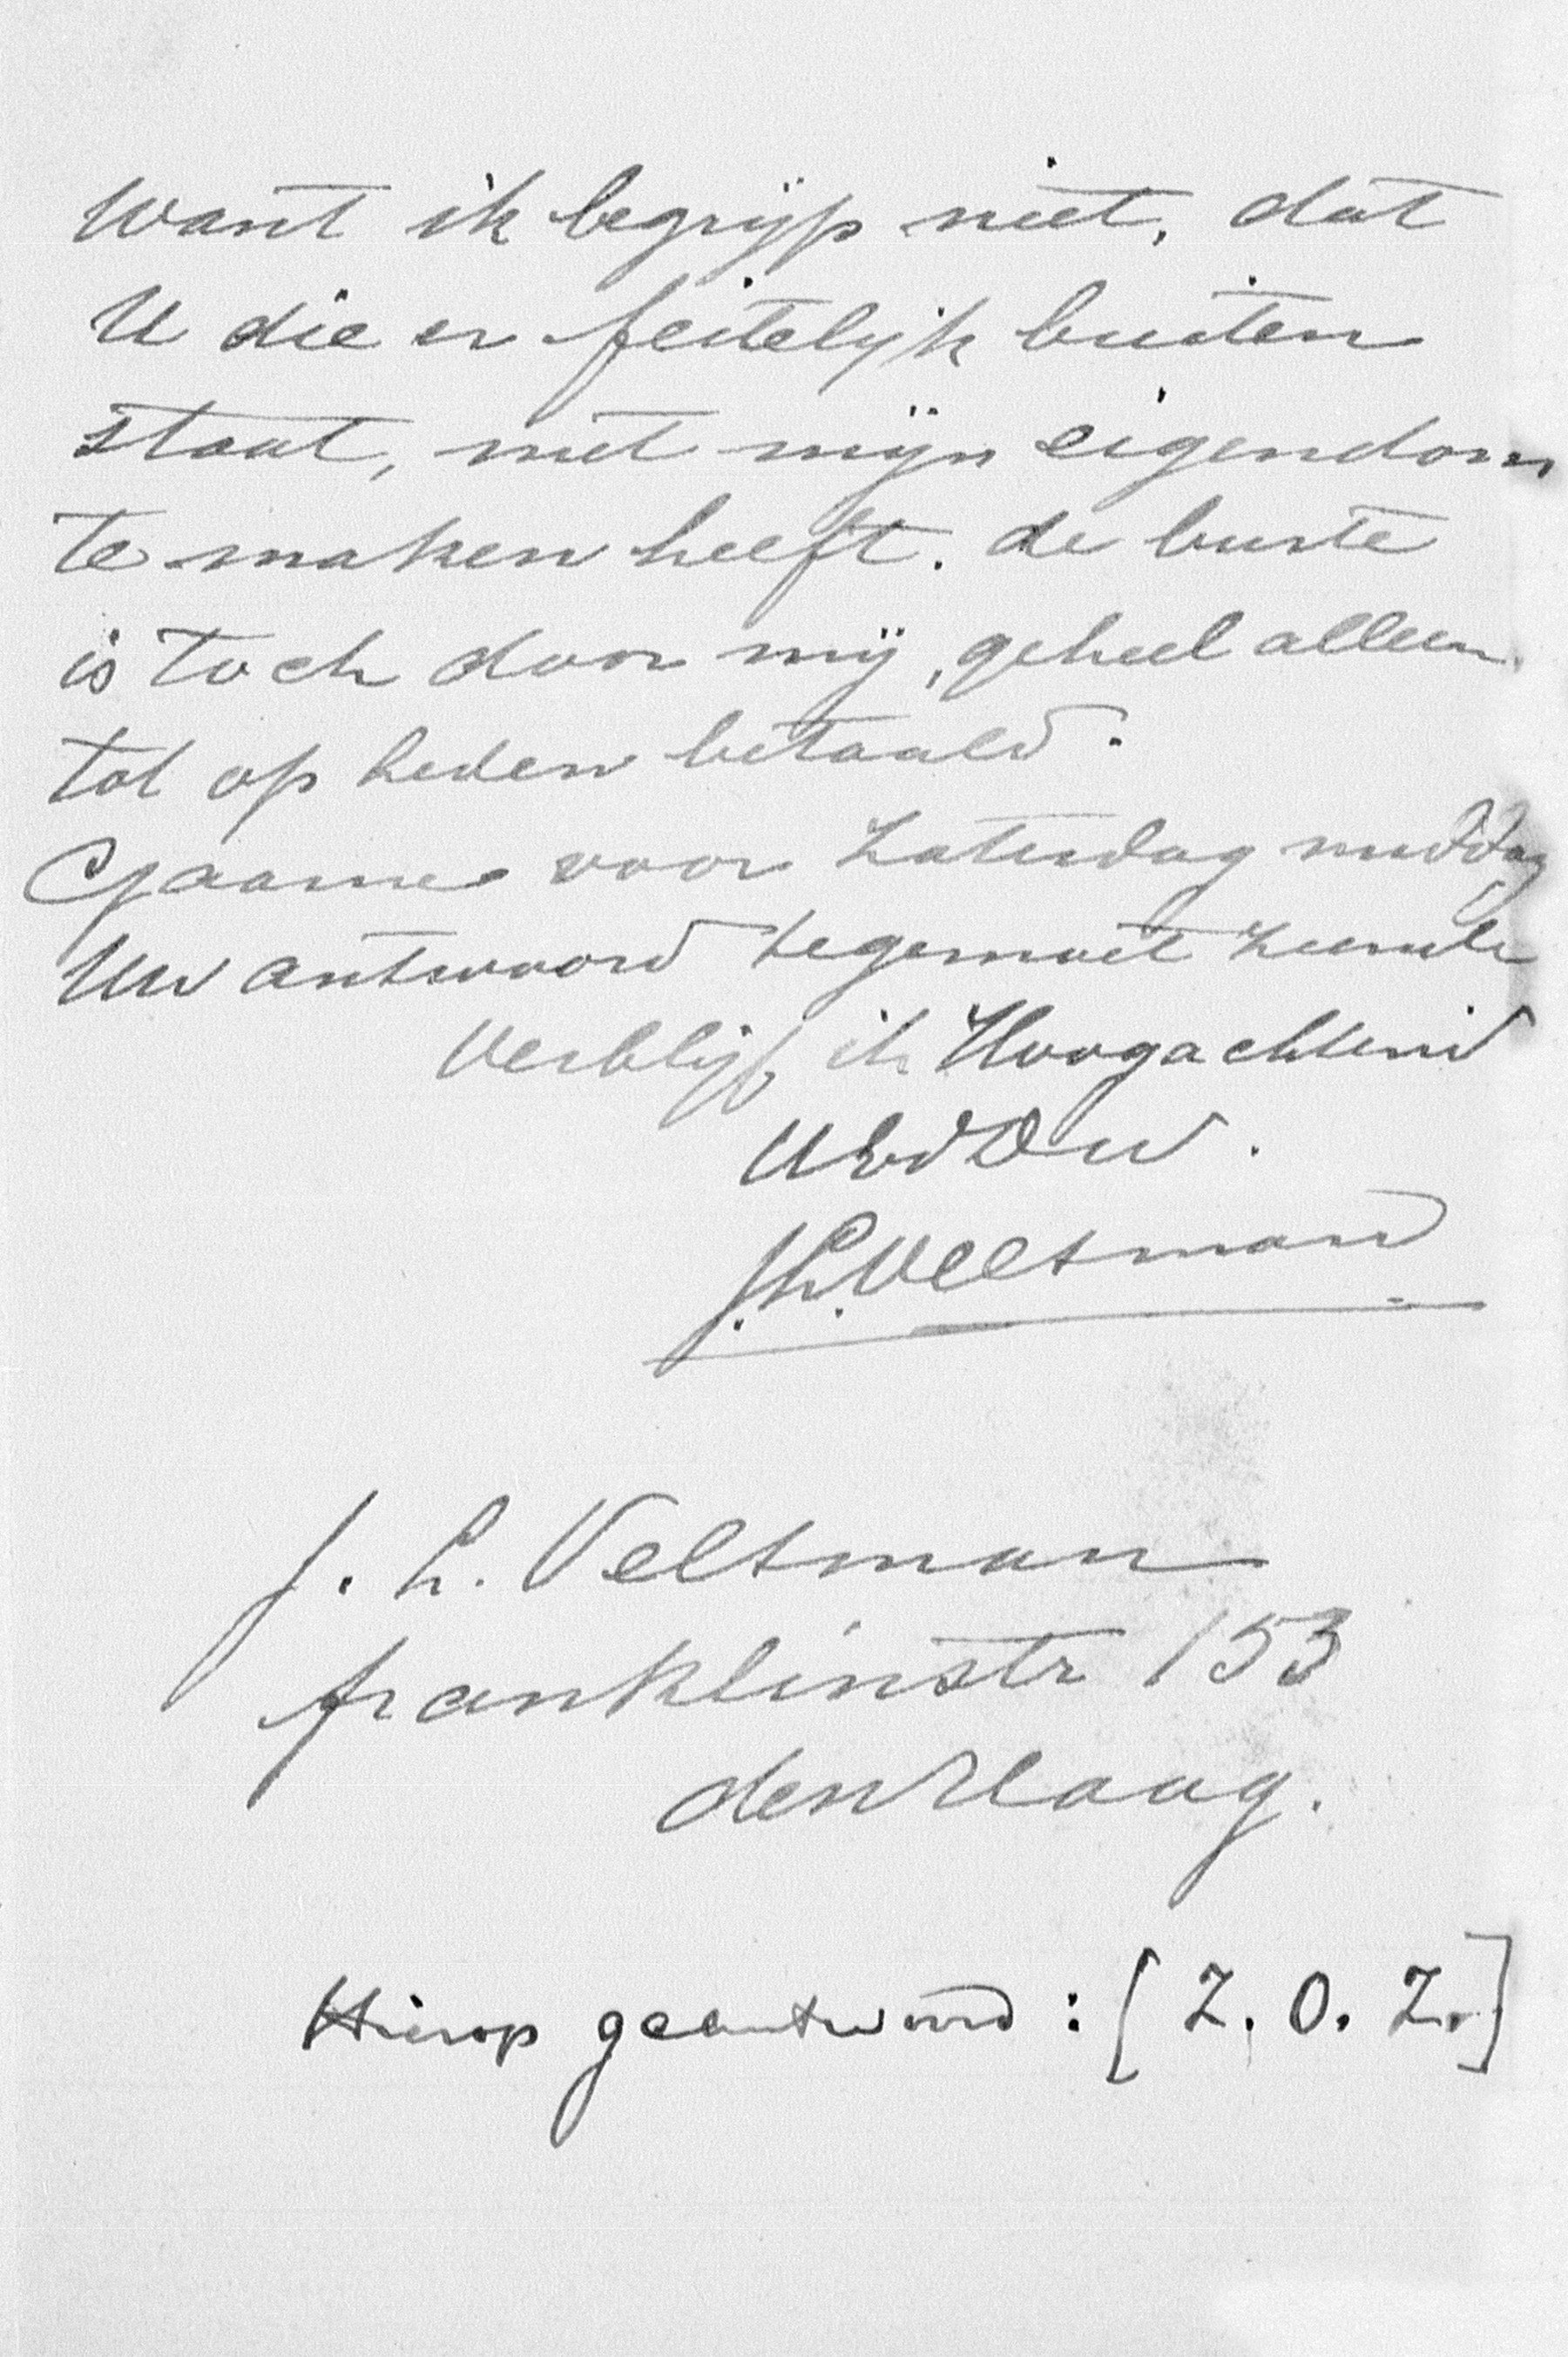 Want ik begrijp niet, dat
U die er feitelijk buiten
staat, met mijn eigendom
te maken heeft. de buste
is toch door mij, geheel alleen
tot op heden betaald.
Gaarne voor Zaterdag middag
Uw antwoord tegemoet ziende
Verblijf ik Hoogachtend
UEdDw.
J.L. Veltman
J. L. Veltman
franklinstr 153
den Haag.
Hierop geantwoord : [Z. O. Z.]